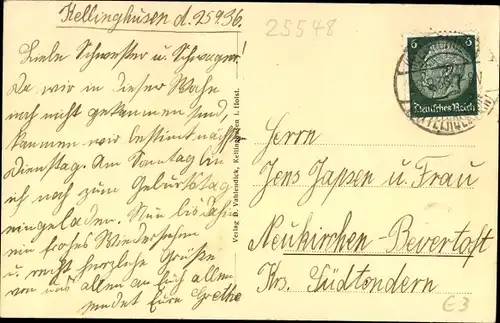 Kellinghusen d. 25.9.36.
Liebe Schwester u. Schwager!
Da wir in dieser Woche
noch nicht gekommen sind,
kommen wir bestimmt nächsten
Dienstag. Am Sonntag bin
ich noch zum Geburtstag
eingeladen. Nun bis dahin
ein frohes Wiedersehen
u. recht herzliche Grüße
von uns allen an Euch allen
sendet Eure Grethe
Verlag D. Vahlendick, Kellinghusen i. Holst.
25548
6 6
Deutsches Reich
Herrn
Jens Japsen u. Frau
Neukirchen-Bevertoft
Krs. Südtondern
€3